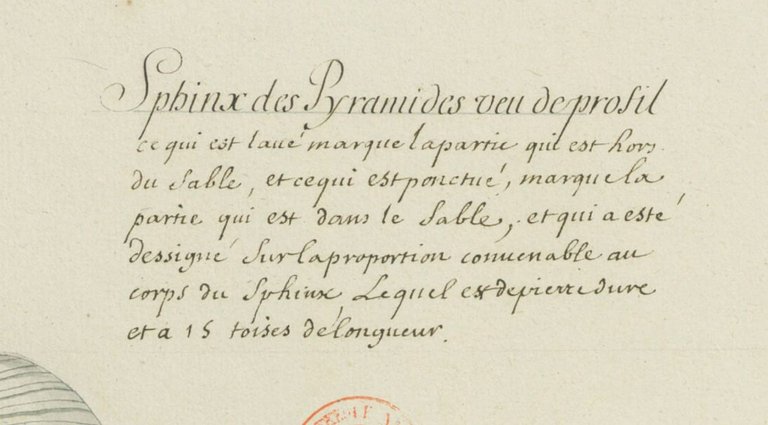 Sphinx des Pyramides veu de profil
ce qui est lavé marque la partie qui est hors
du sable, et ce qui est ponctué, marque la
partie qui est dans le sable, et qui a esté
dessigné sur la proportion convenable au
corps du Sphinx, Lequel est de pierre dure
et a 15 toises de longueur.